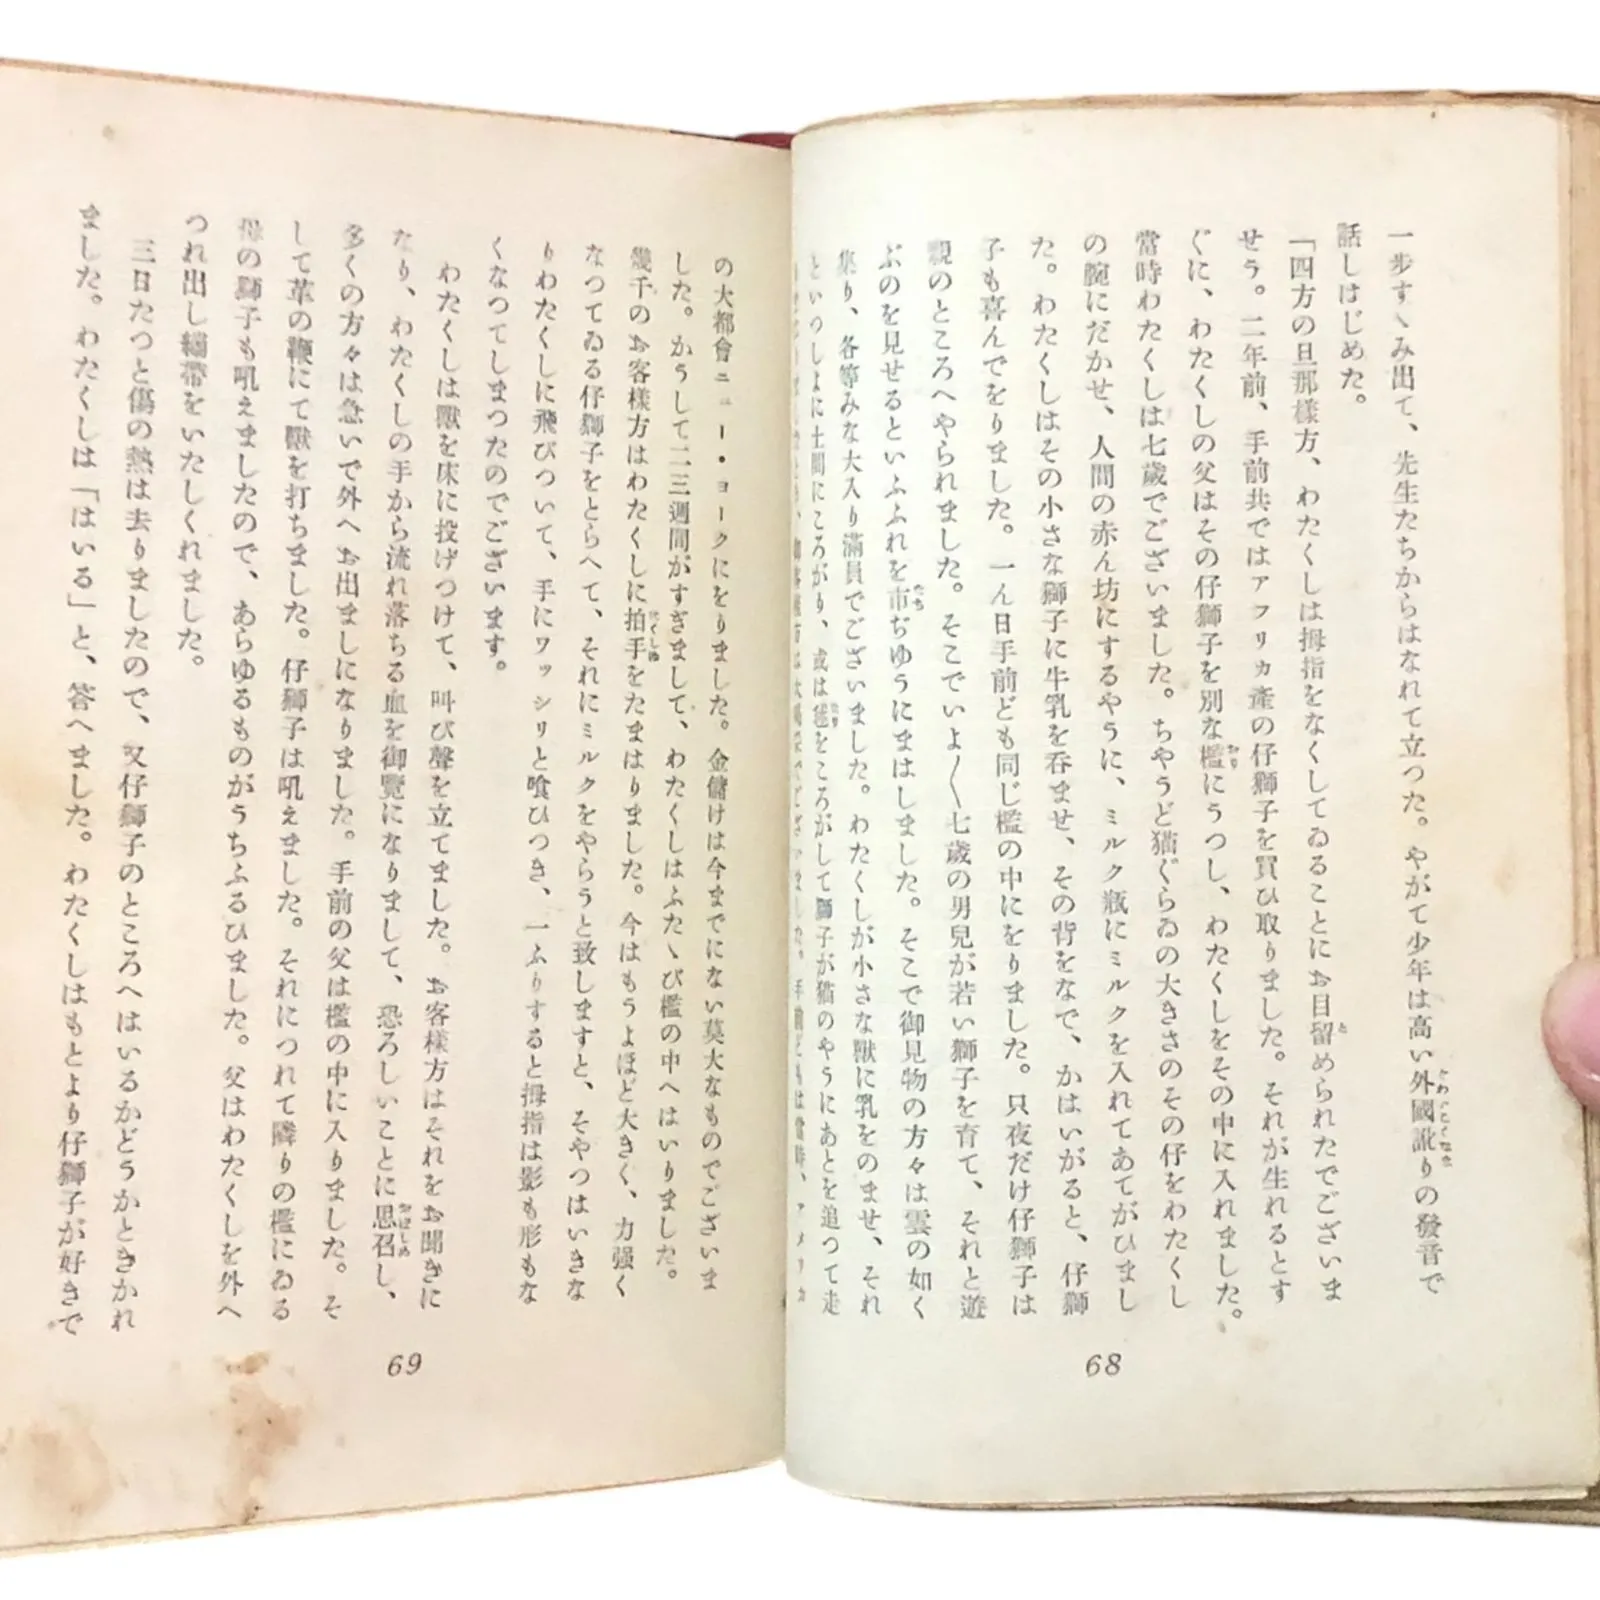 一歩すゝみ出て、先生たちからはなれて立つた。やがて少年は高い外國訛りの發音で
話しはじめた。
「四方の旦那樣方、わたくしは拇指をなくしてゐることにお目留められたでございま
せう。二年前、手前共ではアフリカ產の仔獅子を買ひ取りました。それが生れるとす
ぐに、わたくしの父はその仔獅子を別な檻にうつし、わたくしをその中に入れました。
當時わたくしは七歲でございました。ちやうど猫ぐらゐの大きさのその仔をわたくし
の腕にだかせ、人間の赤ん坊にするやうに、ミルク瓶にミルクを入れてあてがひまし
た。わたくしはその小さな獅子に牛乳を呑ませ、その背をなで、かはいがると、仔獅
子も喜んでをりました。一ん日手前ども同じ檻の中にをりました。只夜だけ仔獅子は
親のところへやられました。そこでいよ〳〵七歲の男兒が若い獅子を育て、それと遊
ぶのを見せるといふふれを市ぢゆうにまはしました。そこで御見物の方々は雲の如く
集り、各等みな大入り滿員でございました。わたくしが小さな獸に乳をのませ、それ
といつしよに土間にころがり、或は毬をころがして獅子が猫のやうにあとを追つて走
ました。手前どもは當時、アメリカ
の大都會ニュー・ヨークにをりました。金儲けは今までにない莫大なものでございま
した。かうして二三週間がすぎまして、わたくしはふたゝび檻の中へはいりました。
幾千のお客樣方はわたくしに拍手をたまはりました。今はもうよほど大きく、力强く
なつてゐる仔獅子をとらへて、それにミルクをやらうと致しますと、そやつはいきな
りわたくしに飛びついて、手にワッシリと喰ひつき、一ふりすると拇指は影も形もな
くなつてしまつたのでございます。
わたくしは獸を床に投げつけて、叫び聲を立てました。お客樣方はそれをお聞きに
なり、わたくしの手から流れ落ちる血を御覽になりまして、恐ろしいことに思召し、
多くの方々は急いで外へお出ましになりました。手前の父は檻の中に入りました。そ
して革の鞭にて獸を打ちました。仔獅子は吼えました。それにつれて隣りの檻にゐる
母の獅子も吼えましたので、あらゆるものがうちふるひました。父はわたくしを外へ
つれ出し繃帶をいたしくれました。
三日たつと傷の熱は去りましたので、又仔獅子のところへはいるかどうかときかれ
ました。わたくしは「はいる」と、答へました。わたくしはもとより仔獅子が好きで
68
69